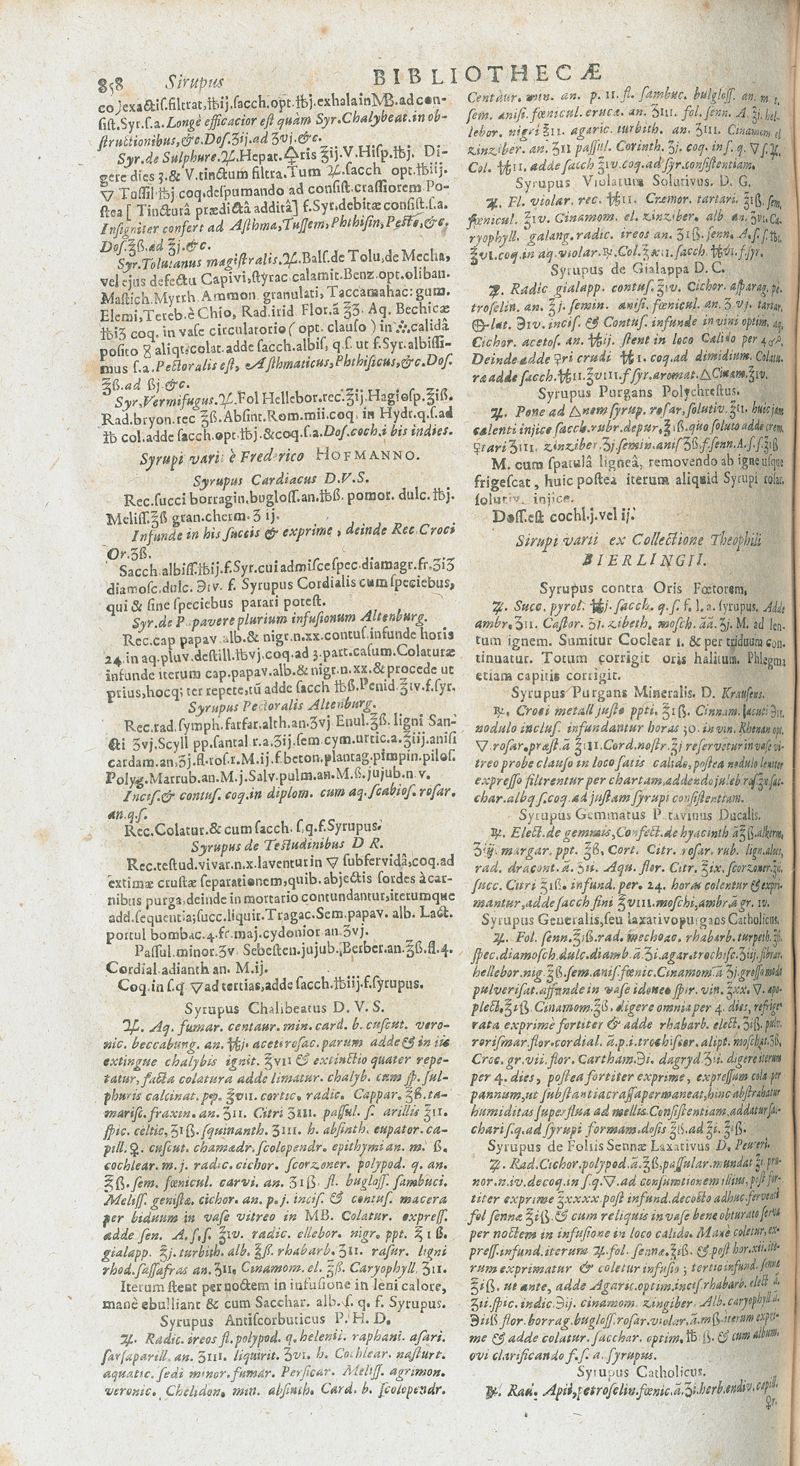 858 Sirupus BIBLIOTHECÆ
co, exactiſ. filtrat, ℔ij. ſacch. opt. ℔j. exhala in MB. ad con-
ſiſt. Syr. ſ. a. Longè efficacior eſt quàm Syr. Chalybeat. in ob-
ſtructionibus, &c. Doſ. ʒij. ad ʒvj. &c.
Syr. de Sulphure. ♃. Hepat. 🜍ris ℥ij. V. Hiſp. ℔j. Di-
gere dies 3. & V. tinctum filtra. Tum ♃. ſacch opt. ℔iij.
▽ Tuſſil ℔j coq. deſpumando ad conſiſt. craſſiorem Po-
ſtea [ Tincturâ prædictâ additâ] f. Syr. debitæ conſiſt. ſ. a.
Inſigniter confert ad Aſthma, Tuſſem, Phthiſin, Peſte, &c.
Doſ. ℥ß. ad ℥j. &c.
Syr. Tolutanus magiſtralis. ♃. Balſ. de Tolu, de Mecha,
vel ejus defectu Capivi, ſtyrac calamit. Benz. opt. oliban.
Maſtich. Myrrh. Ammon granulati, Taccamahac: gum.
Elemi, Tereb. è Chio, Rad. irid Flor. ā ℥3. Aq. Bechicæ
℔i3 coq. in vaſe circulatorio ( opt. clauſo ) in ∴ calidâ
poſito & aliqt: colat. adde ſacch. albiſſ, q. ſ. ut f. Syr. albiſſi-
mus ſ. a. Pectoralis eſt, Aſthmaticus, Phthiſicus, &c. Doſ.
℥ß. ad ßj. &c.
Syr. Vermifugus. ♃. Fol Hellebor. rec. ℥ij. Hagioſp. ℥iß.
Rad. bryon. rec ℥ß. Abſint. Rom. mii. coq. in Hydr. q. ſ. ad
℔ col. adde ſacch. opt. ℔j. & coq. ſ. a. Doſ. coch. i bis indies.
Syrupi varii è Frederico HOFMANNO.
Syrupus Cardiacus D. V. S.
Rec. ſucci borragin. bugloſſ. an. ℔ß. pomor. dulc. ℔j.
Meliſſ. ℥ß gran. cherm. ʒ ij.
Infunde in his ſuccis & exprime, deinde Rec. Croci
Or. ʒß.
Sacch albiſſ. ℔ij. f. Syr. cui admiſce ſpec. diamagr. fr. ʒi3
diamoſc. dulc. ℈iv. f. Syrupus Cordialis cum ſpeciebus,
qui & ſine ſpeciebus parari poteſt.
Syr. de Papavere plurium infuſionum Altenburg.
Rec. cap papav. alb. & nigr. n. xx. contuſ. infunde horis
24. in aq. pluv. deſtill. ℔vj. coq. ad 3. part. caſum. Colaturæ
infunde iterum cap. papav. alb. & nigr. n. xx. & procede ut
prius, hocq; ter repete, tū adde ſacch ℔ß. Penid. ℥iv. f. ſyr.
Syrupus Pectoralis Altenburg.
Rec. rad. ſymph. farfar. alth. an. ʒvj Enul. ℥ß. ligni San-
cti ʒvj. Scyll pp. ſantal r. a. ʒij. ſem cym. urtic. a ʒiij. aniſi
cardam. an. ʒj. fl. roſ. r. M. ij. f. beton. plantag. pimpin. piloſ.
Polyg. Marrub. an. M. j. Salv. pulm. an. M. ß. jujub. n. v.
Inciſ. & contuſ. coq. in diplom. cum aq. ſcabioſ. roſar.
an. q. ſ.
Rec. Colatur. & cum ſacch. ſ, q. f. Syrupus.
Syrupus de Teſtudinibus D R.
Rec. teſtud. vivar. n. x. laventut in ▽ ſubfervidâ, coq. ad
extimæ cruſtæ ſeparationem, quib. abjectis ſordes à car-
nibus purga, deinde in mortario contundantur, iterumque
add. ſequentia; ſucc. liquir. Tragac. Sem. papav. alb. Lact.
portul bombac. 4. fr. maj. cydonior an. ʒvj.
Paſſul. minor. ʒv Sebeſten. jujub. Berber. an. ℥ß. fl. 4.
Cordial. adianth an. M. ij.
Coq. in ſ. q ▽ ad tertias, adde ſacch. ℔iij. f. ſyrupus.
Syrupus Chalibeatus D. V. S.
♃. Aq. fumar. centaur. min. card. b. cuſcut. vero-
nic. beccabung. an. ℔j. aceti roſac. parum adde & in iis
extingue chalybis ignit. ℥vii & extinctio quater repe-
tatur, facta colatura adde limatur. chalyb. cum ſp. ſul-
phuris calcinat. pp. ℥vii. cortic. radic. Cappar. ℥ß. ta-
mariſc. fraxin. an. ʒii. Citri ʒiii. paſſul. ſ. arillis ℥ii.
ſpic. celtic. ʒiß. ſquinanth. ʒiii. h. abſinth. eupator. ca-
pill. ♀. cuſcut. chamædr. ſcolopendr. epithymi an. m. ß.
cochlear. m. j. radic. cichor. ſcorzoner. polypod. q. an.
℥ß. ſem. fœnicul. carvi. an. ʒiß. fl. bugloſſ. ſambuci.
Meliſſ. geniſtæ, cichor. an. p. j. inciſ. & contuſ. macera
per biduum in vaſe vitreo in MB. Colatur. expreſſ.
adde ſen. A. ſ. ſ. ℥iv. radic. ellebor. nigr. ppt. ℥iß.
gialapp. ℥j. turbith. alb. ℥ß. rhabarb. ʒii. raſur. ligni
rhod. ſaſſafras an. ʒii. Cinamom. el. ℥ß. Caryophyll. ʒii.
Iterum ſtent per noctem in infuſione in leni calore,
manè ebulliant & cum Sacchar. alb. ſ. q. f. Syrupus.
Syrupus Antiſcorbuticus P. H. D.
♃. Radic. ireos fl. polypod. q. helenii. raphani. aſari.
ſarſaparill. an. ʒiii. liquirit. ʒvi. h. Cochlear. naſturt.
aquatic. ſedi minor. fumar. Perſicar. Meliſſ. agrimon.
veronic. Chelidon. min. abſinth. Card. b. ſcolopendr.
Centaur. min. an. p. ii. fl. ſambuc. bulgloſſ. an. m 1.
ſem. aniſi. fœnicul. erucæ. an. ʒiii. fol. ſenn. A ℥j. hel-
lebor. nigri ℥ii. agaric. turbith. an. ʒiii. Cinamom el
zinziber. an. ʒii paſſul. Corinth. ℥j. coq. in ſ. q. ▽ ſ. ♃.
Col. ℔ii. adde ſacch ℥iv. coq. ad ſyr. conſiſtentiam.
Syrupus Violatum Solutivus. D. G.
♃. Fl. violar. rec. ℔ii. Cremor. tartari. ℥iß. ſem.
fœnicul. ℥iv. Cinamom. el. zinziber. alb an. ʒvi. Ca-
ryophyll. galang. radic. ireos an. ʒiß. ſenn. A. ſ. ſ. ℔.
℥vi. coq. in aq. violar. ♃. Col. ℥xii. ſacch. ℔vi. f. ſyr.
Syrupus de Gialappa D. C.
♃. Radic gialapp. contuſ. ℥iv. Cichor. aſparag. pe-
troſelin. an. ℥j. ſemin. aniſi. fœnicul. an. ʒ vj. tartar.
⊕-lat. ℈iv. inciſ. & Contuſ. infunde in vini optim. aq.
Cichor. acetoſ. an. ℔ij. ſtent in loco Calido per 4
Deinde adde ♀ri crudi ℔1. coq. ad dimidium. Colatu-
ra adde ſacch. ℔ii. ℥viii. f ſyr. aromat. △ Cinam. ℥iv.
Syrupus Purgans Polychreſtus.
♃. Pone ad △nem ſyrup. roſar, ſolutiv. ℥ii. huic jam
calenti injice ſacch. rubr. depur. ℥iß. quo ſoluto adde crem.
♀tari ʒiii. zinziber. ʒj. ſemin. aniſ ʒß. f. ſenn. A. ſ. ſ. ℥iß
M. cum ſpatulâ ligneâ, removendo ab igne uſque
frigeſcat, huic poſtea iterum aliquid Syrupi roſar.
ſolutiv. injice.
Doſſ. eſt cochl. j. vel ij.
Sirupi varii ex Collectione Theophili
BIERLINGII.
Syrupus contra Oris Fœtorem,
♃. Succ. pyrol. ℔j. ſacch. q. ſ. f. l. a. ſyrupus. Adde
ambr. ʒii. Caſtor. ʒj. zibeth, moſch. āā. ʒj. M. ad len-
tum ignem. Sumitur Coclear 1. & per triduum con-
tinuatur. Totum corrigit oris halitum. Phlegma
etiam capitis corrigit.
Syrupus Purgans Mineralis. D. Krauſens.
♃. Croci metall juſte ppti. ℥iß. Cinnam. acuti ℈ii.
nodulo incluſ. infundantur horas 30. in vin. Rhenan opt.
▽. roſar. præſt. ā ℥iii. Cord. noſtr. ℥j reſervetur in vaſe vi-
treo probe clauſo in loco ſatis calido, poſtea nodulo leniter
expreſſo filtrentur per chartam, addendo juleb roſ ℥x ſac-
char. alb q ſ. coq. ad juſtam ſyrupi conſiſtentiam.
Syrupus Gemmatus Patavinus Ducalis.
♃. Elect. de gemmis, Confect. de hyacinth ā ℥ß. alkerm.
ʒij. margar. ppt. ℥ß. Cort. Citr. roſar. rub. lign. aloes,
rad. dracont. ā. ʒii. Aqu. flor. Citr. ℥ix. ſcorzoner. ℥ii,
ſucc. Citri ℥iß. infund. per. 24. horas colentur & expri-
mantur, adde ſacch fini ℥viii. moſchi, ambr. ā gr. iv.
Syrupus Generalis, ſeu laxativo purgans Catholicus.
♃. Fol. ſenn. ℥iß. rad. mechoac. rhabarb. turpeth. ℥ß.
ſpec. diamoſch. dulc. diamb. ā. ʒi. agar. trochiſc. ʒiij. fibrar.
hellebor. nig. ℥ß. ſem. aniſ. fœnic. Cinamom. ā ʒj. groſſo modo
pulveriſat. affunde in vaſe idoneo ſpir. vin. ℥xx. ▽. apo-
plect. ℥iß. Cinamom. ℥ß. digere omnia per 4. dies, refrige-
rata exprime fortiter & adde rhabarb. elect. ʒiß. pulv.
roriſmar. flor. cordial. ā. p. i. trochiſcor. alipt. moſchat. ʒß.
Croc. gr. vii. flor. Cartham. ℈i. dagryd ʒii. digere iterum
per 4. dies, poſtea fortiter exprime, expreſſum cola per
pannum, ut ſubſtantia craſſa permaneat, hinc abſtrahatur
humiditas ſuperflua ad mellis. Conſiſtentiam, addatur ſac-
chari ſ. q. ad ſyrupi formam. doſis ℥ß. ad ℥i. ℥iß.
Syrupus de Foliis Sennæ Laxativus D. Peuceri.
♃. Rad. Cichor. polypod. ā. ℥ß, paſſular. mundat ℥i. pru-
nor. n. iv. decoq. in ſ. q. ▽. ad conſumtionem illius, poſt for-
titer exprime ℥xxxx. poſt infund. decocto adhuc ferventi
fol ſennæ ℥iß. & cum reliquis in vaſe bene obturato ſerva
per noctem in infuſione in loco calido. Manè coletur, ex-
preſſ. infund. iterum ♃. fol. ſennæ. ℥iß. & poſt hor. xii. ite-
rum exprimatur & coletur infuſio; tertio infund. ſennæ
℥iß. ut ante, adde Agaric. optim. inciſ. rhabarb. elect ā.
ʒii. ſpic. indic. ℈ij. cinamom. zingiber. Alb. caryophyll ā.
℈iiß. flor. borrag. bugloſſ. roſar. violar. ā. mß. iterum expri-
me & adde colatur. ſacchar. optim. ℔ ß. & cum album.
ovi clarificando f. ſ. a. ſyrupus.
Syrupus Catholicus.
♃. Rad. Apii, petroſelin. fœnic. ā. ʒi. herb. endiv. capill.